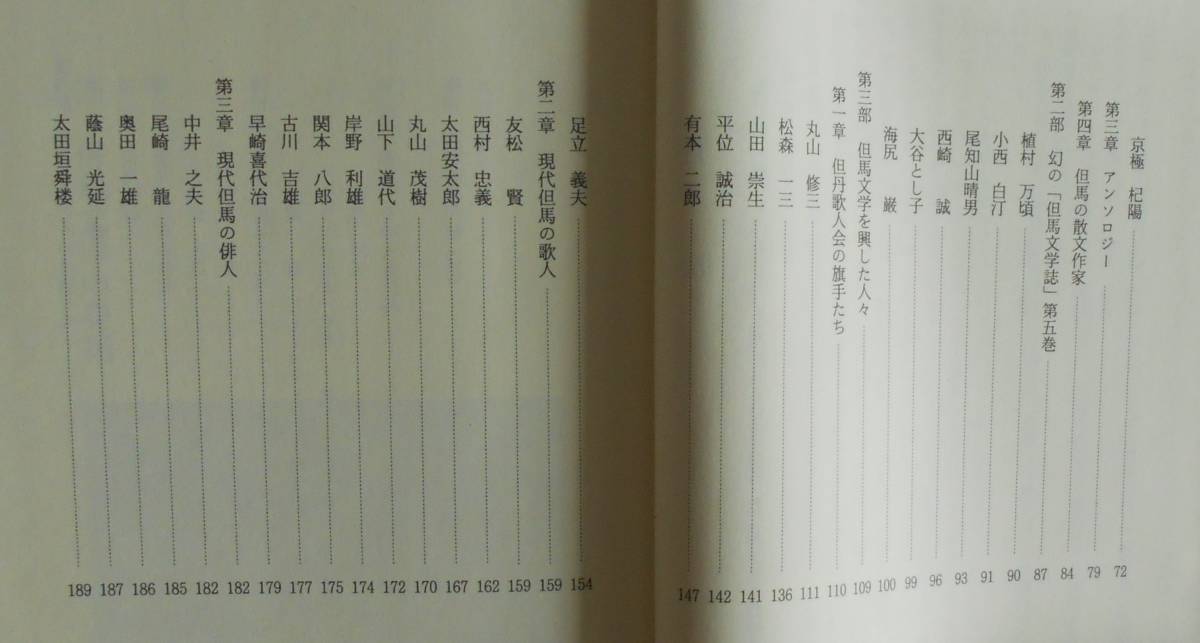 京極 杞陽 72
第三章 アンソロジー 79
第四章 但馬の散文作家 84
第二部 幻の「但馬文学誌」第五巻 87
植村 万頃 90
小西 白汀 91
尾知山晴男 93
西崎 誠 96
大谷とし子 99
海尻 巌 100
第三部 但馬文学を興した人々 109
第一章 但丹歌人会の旗手たち 110
丸山 修三 111
松森 一三 136
山田 崇生 141
平位 誠治 142
有本 二郎 147
足立 義夫 154
第二章 現代但馬の歌人 159
友松 賢 159
西村 忠義 162
太田安太郎 167
丸山 茂樹 170
山下 道代 172
岸野 利雄 174
関本 八郎 175
古川 吉雄 177
早崎喜代治 179
第三章 現代但馬の俳人 182
中井 之夫 182
尾崎 龍 185
奥田 一雄 186
蔭山 光延 187
太田垣舜楼 189